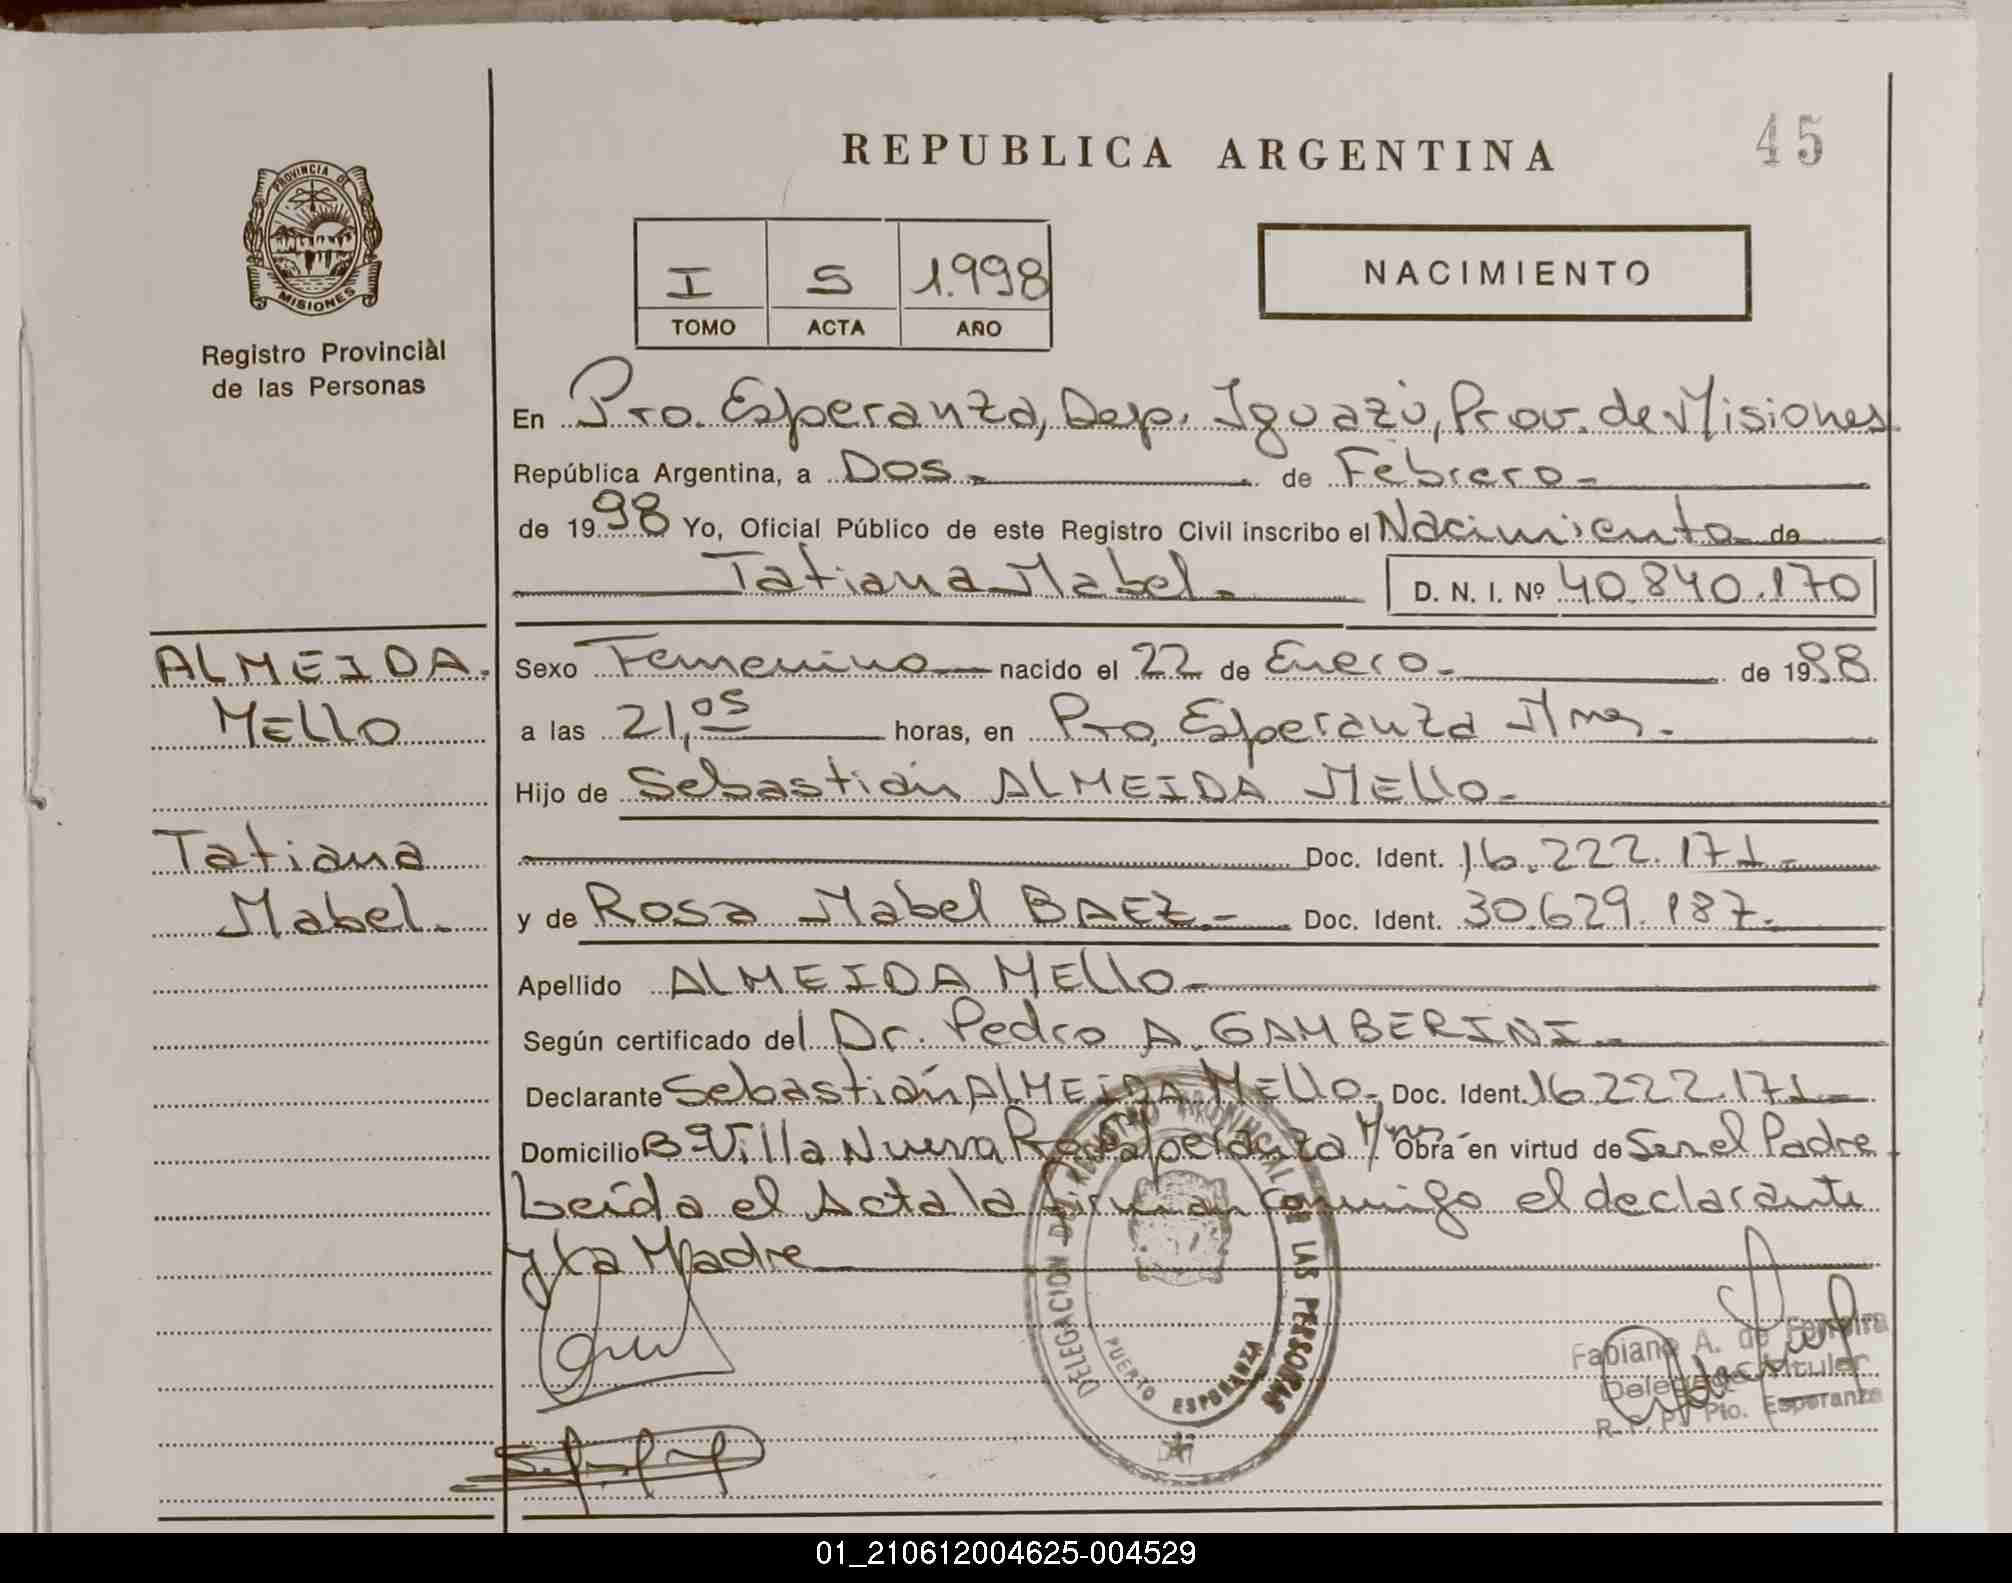 REPUBLICA ARGENTINA
45
PROVINCIA DE
MISIONES
Registro Provincial
de las Personas
I S 1.998
TOMO ACTA AÑO
NACIMIENTO
En Pto. Esperanza, Dep. Iguazú, Prov. de Misiones
República Argentina, a Dos.- de Febrero.-
de 1998 Yo, Oficial Público de este Registro Civil inscribo el Nacimiento de
Tatiana Mabel.- D. N. I. Nº 40.840.170
ALMEIDA
MELLO
Tatiana
Mabel.-
Sexo Femenino nacido el 22 de Enero.- de 1998.
a las 21,05 horas, en Pto. Esperanza Mnes.-
Hijo de Sebastián ALMEIDA MELLO.-
Doc. Ident. 16.222.171.-
y de Rosa Mabel BAEZ.- Doc. Ident. 30.629.187.-
Apellido ALMEIDA MELLO.-
Según certificado del Dr. Pedro A. GAMBERINI.-
Declarante Sebastián ALMEIDA MELLO.- Doc. Ident. 16.222.171.-
Domicilio Bº Villa Nueva Mnes Obra en virtud de Ser el Padre
Leída el Acta la firman conmigo el declarante
y la Madre
DELEGACION DEL REGISTRO PROVINCIAL DE LAS PERSONAS
PUERTO ESPERANZA
Fabiana A. de Ferreira
R. P. P. Pto. Esperanza
01_210612004625-004529